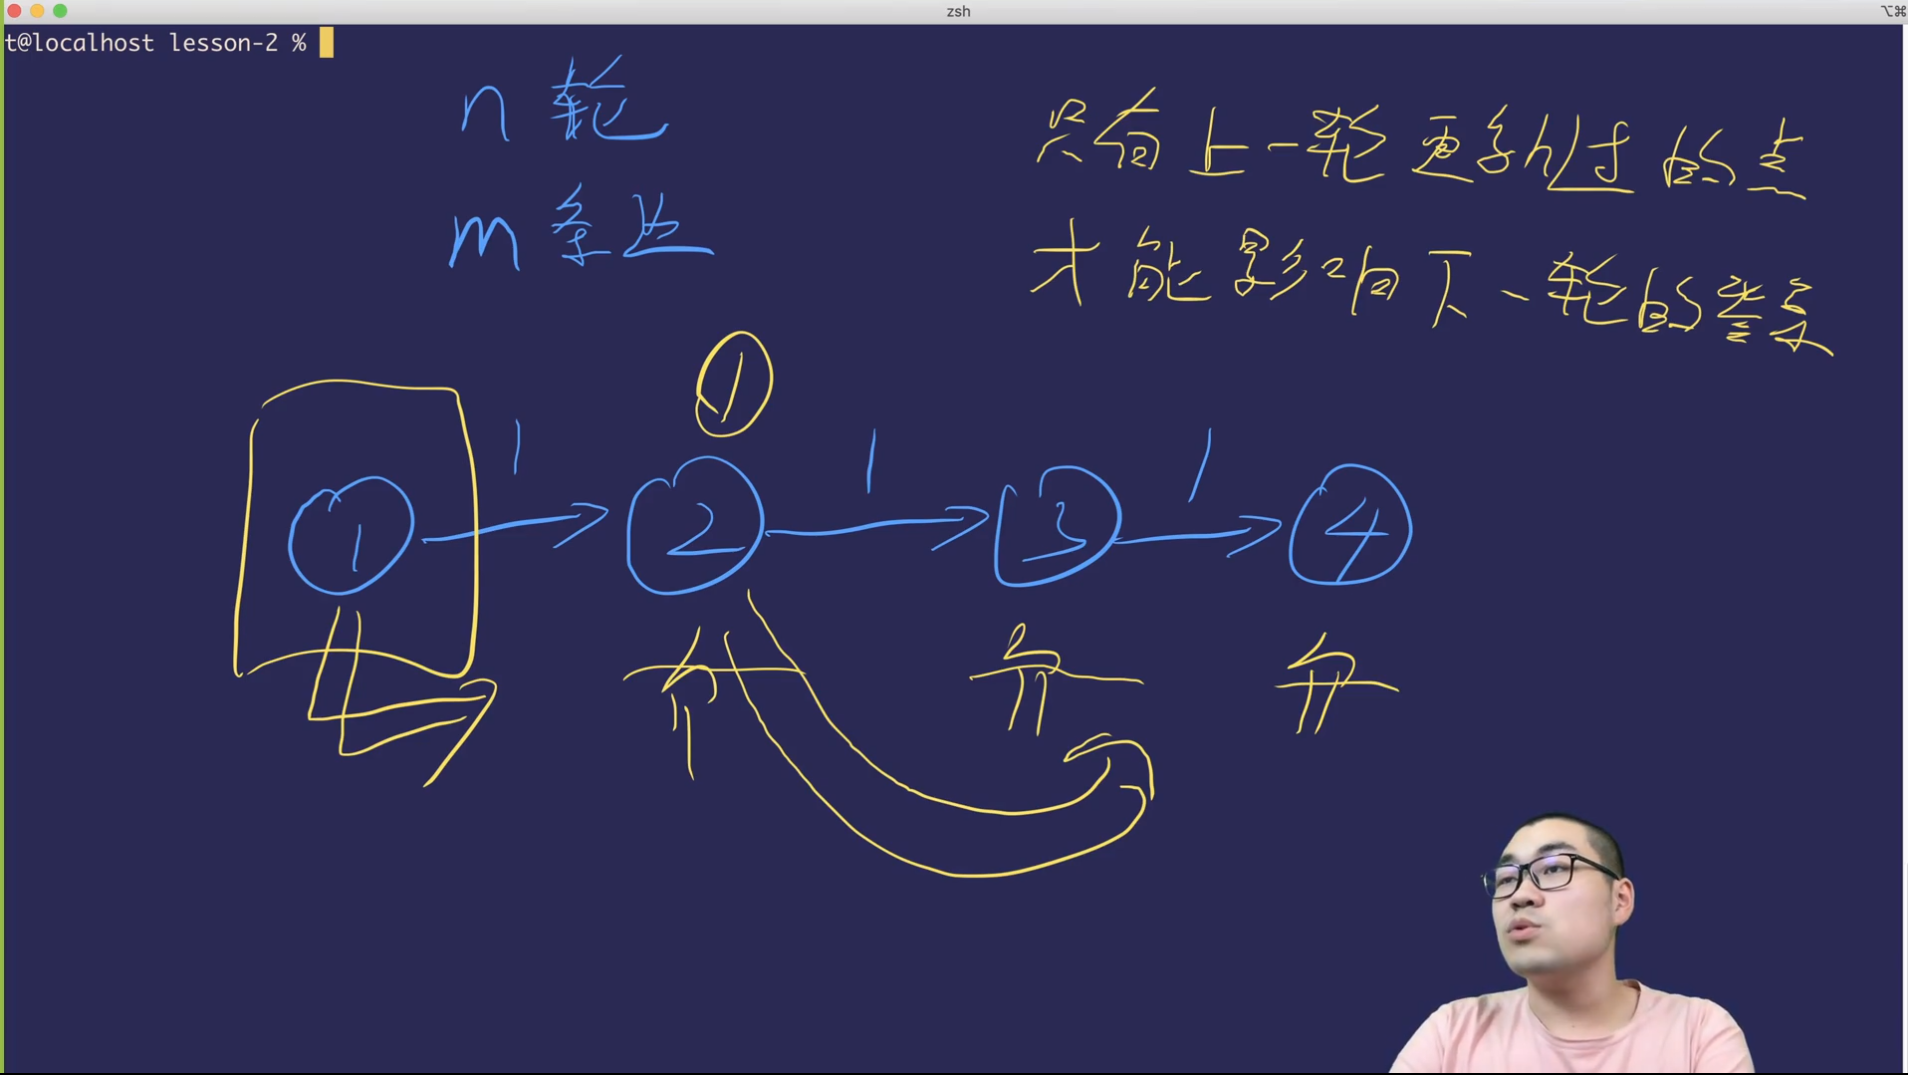 zsh
⌥⌘
t@localhost lesson-2 %
n 轮
m 条边
只有上一轮更新过的点
才能影响下一轮的答案
1
1 1 1
1 2 3 4